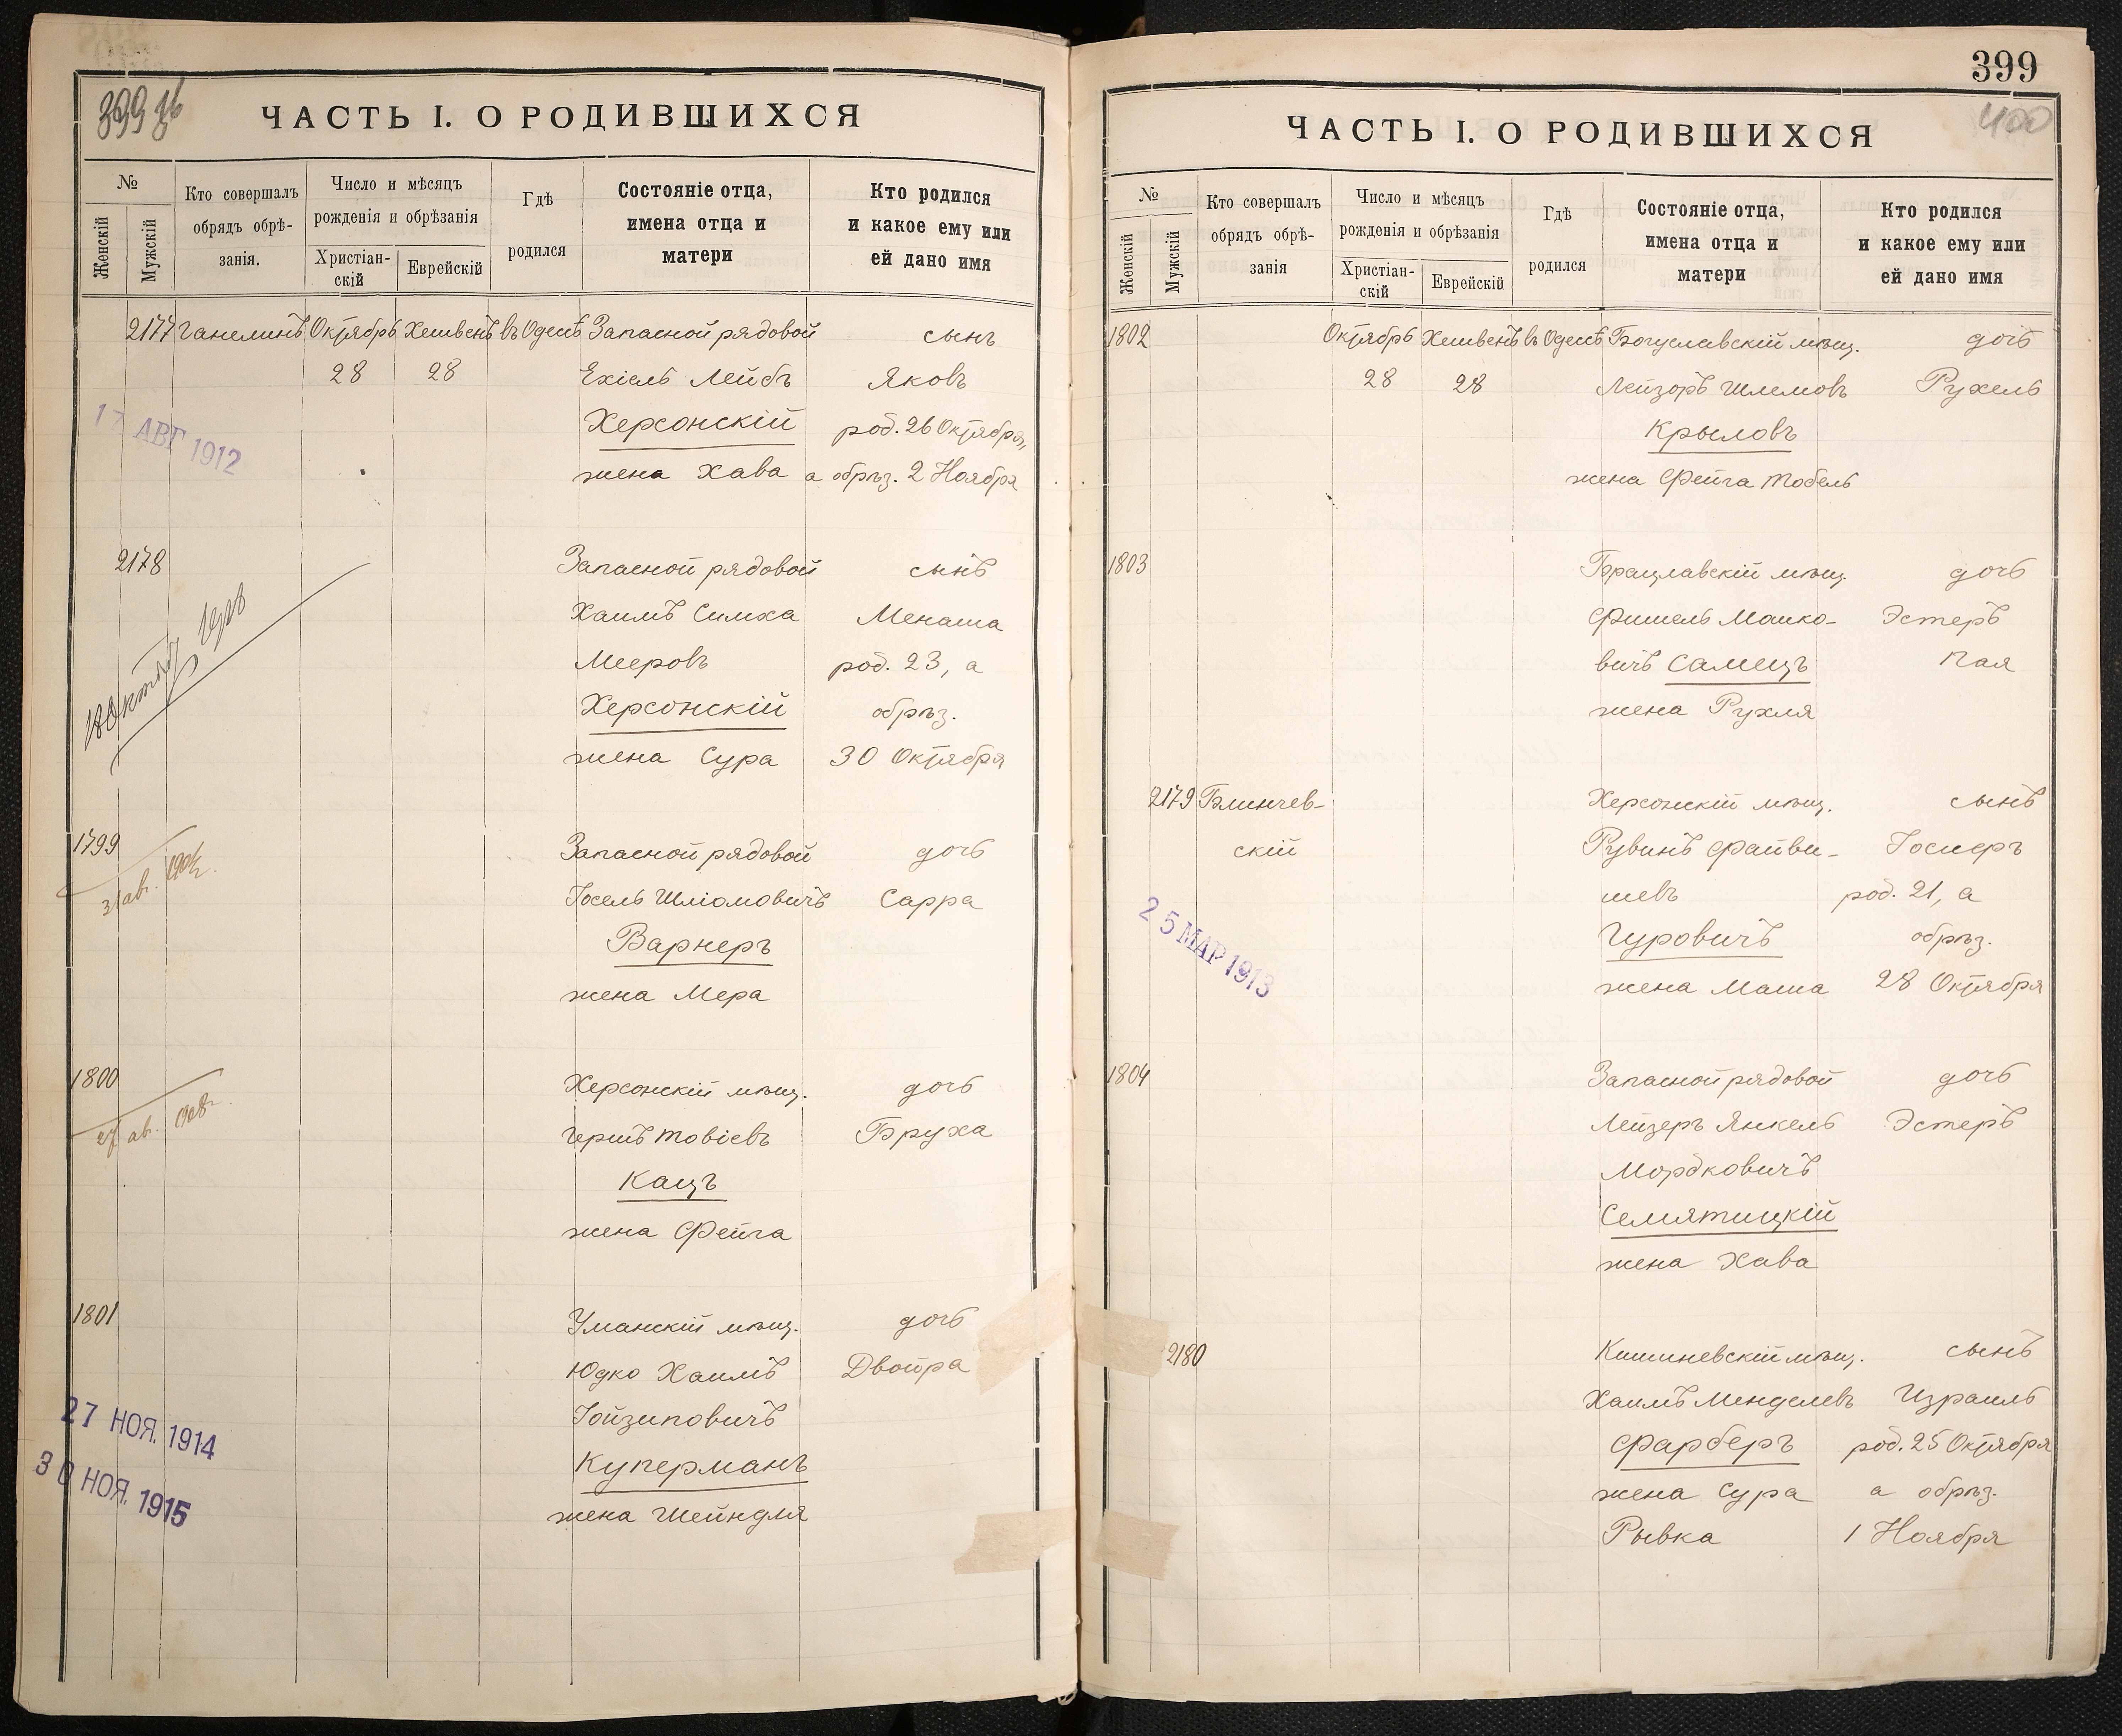 399 об
ЧАСТЬ I. О РОДИВШИХСЯ
№
Женскій
Мужскій
Кто совершалъ обрядъ обрѣ-занія.
Число и мѣсяцъ рожденія и обрѣзанія
Христіан-скій
Еврейскій
Гдѣ родился
Состояніе отца, имена отца и матери
Кто родился и какое ему или ей дано имя
2177 Ганелинъ Октябрь Хешвенъ въ Одессѣ Запасной рядовой сынъ
28 28 Ехіель Лейбъ Яковъ
Херсонскій род. 26 Октября,
жена Хава а обрѣз. 2 Ноября
17 АВГ 1912
2178 Запасной рядовой сынъ
Хаимъ Симха Менаша
Мееровъ род. 23, а
Херсонскій обрѣз.
жена Сура 30 Октября
1799 Запасной рядовой дочь
31 ав.
Іосель Шліомовичъ Сарра
Варнеръ
жена Мера
1800 Херсонскій мѣщ. дочь
27 ав. 1908
Гершъ Товіевъ Бруха
Кацъ
жена Фейга
1801 Уманскій мѣщ. дочь
Юдко Хаимъ Двойра
Іойзиповичъ
Куперманъ
жена Шейндля
27 НОЯ. 1914
30 НОЯ. 1915
399
400
ЧАСТЬ I. О РОДИВШИХСЯ
№
Женскій
Мужскій
Кто совершалъ обрядъ обрѣ-занія
Число и мѣсяцъ рожденія и обрѣзанія
Христіан-скій
Еврейскій
Гдѣ родился
Состояніе отца, имена отца и матери
Кто родился и какое ему или ей дано имя
1802 Октябрь Хешвенъ въ Одессѣ Богуславскій мѣщ. дочь
28 28 Лейзоръ Шлемовъ Рухель
Крыловъ
жена Фейга Тобель
1803 Брацлавскій мѣщ. дочь
Фишель Мошко- Эстеръ
вичъ Самецъ Пая
жена Рухля
2179 Блинчев- Херсонскій мѣщ. сынъ
скій Рувинъ Файви- Іосперъ
шевъ род. 21, а
Гуровичъ обрѣз.
жена Маша 28 Октября
25 МАР 1913
1804 Запасной рядовой дочь
Лейзеръ Янкель Эстеръ
Мордковичъ
Семятицкій
жена Хава
2180 Кишиневскій мѣщ. сынъ
Хаимъ Менделевъ Израиль
Фарберъ род. 25 Октября
жена Сура а обрѣз.
Рывка 1 Ноября